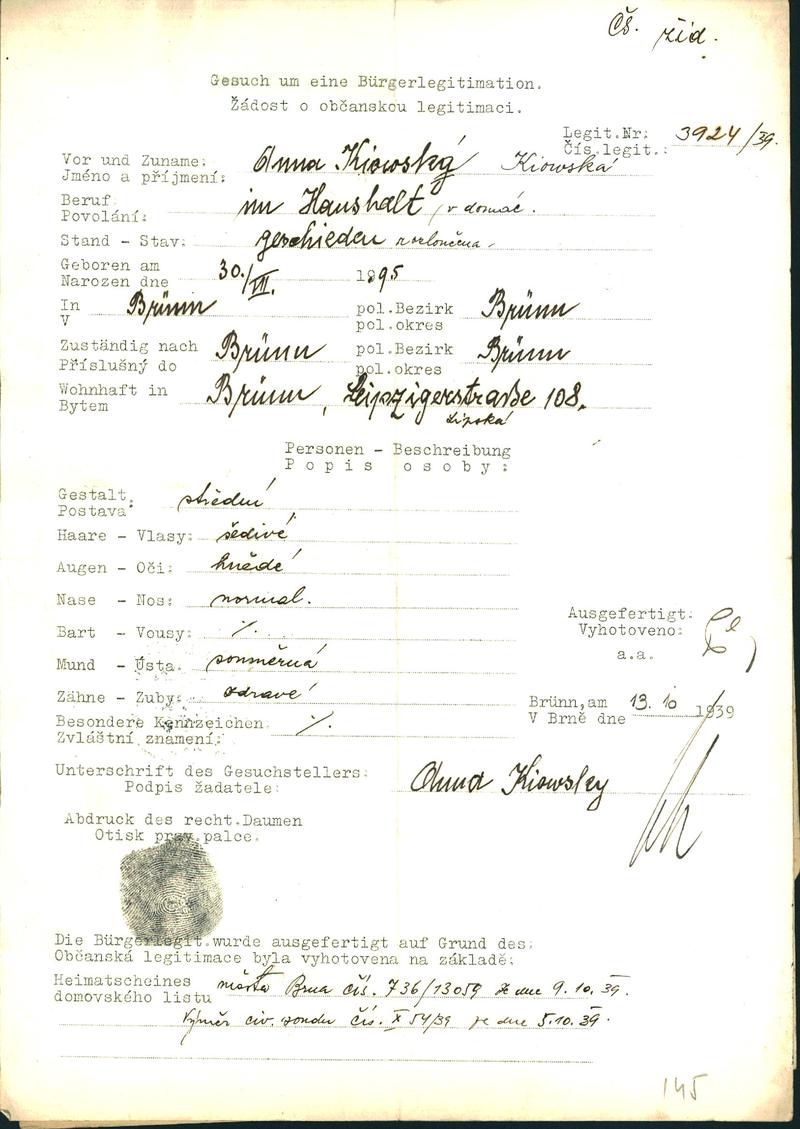 Čs. žid.
Gesuch um eine Bürgerlegitimation.
Žádost o občanskou legitimaci.
Legit.Nr: 3924/39.
Čís.legit.:
Vor und Zuname: Anna Kiowský Kiowská
Jméno a příjmení:
Beruf: im Haushalt / v domác.
Povolání:
Stand - Stav: geschieden rozloučena
Geboren am 30./VII. 1895
Narozen dne
In Brünn pol.Bezirk Brünn
V pol.okres
Zuständig nach Brünn pol.Bezirk Brünn
Příslušný do pol.okres
Wohnhaft in Brünn, Leipzigerstraße 108.
Bytem Lipská
Personen - Beschreibung
Popis osoby:
Gestalt: střední
Postava:
Haare - Vlasy: šedivé
Augen - Oči: hnědé
Nase - Nos: normal.
Ausgefertigt:
Vyhotoveno:
Bart - Vousy: ./.
a.a.
Mund - Ústa: souměrná
Zähne - Zuby: zdravé
Brünn,am 13. 10 1939
V Brně dne
Besondere Kennzeichen: ./.
Zvláštní znamení:
Unterschrift des Gesuchstellers: Anna Kiowsky
Podpis žadatele:
Abdruck des recht.Daumen
Otisk prav.palce.
Die Bürgerlegit.wurde ausgefertigt auf Grund des:
Občanská legitimace byla vyhotovena na základě:
Heimatscheines města Brna čís. 736/13059 ze dne 9.10.39.
domovského listu
Výměr civ. soudu čís. X 54/39 ze dne 5.10.39.
145